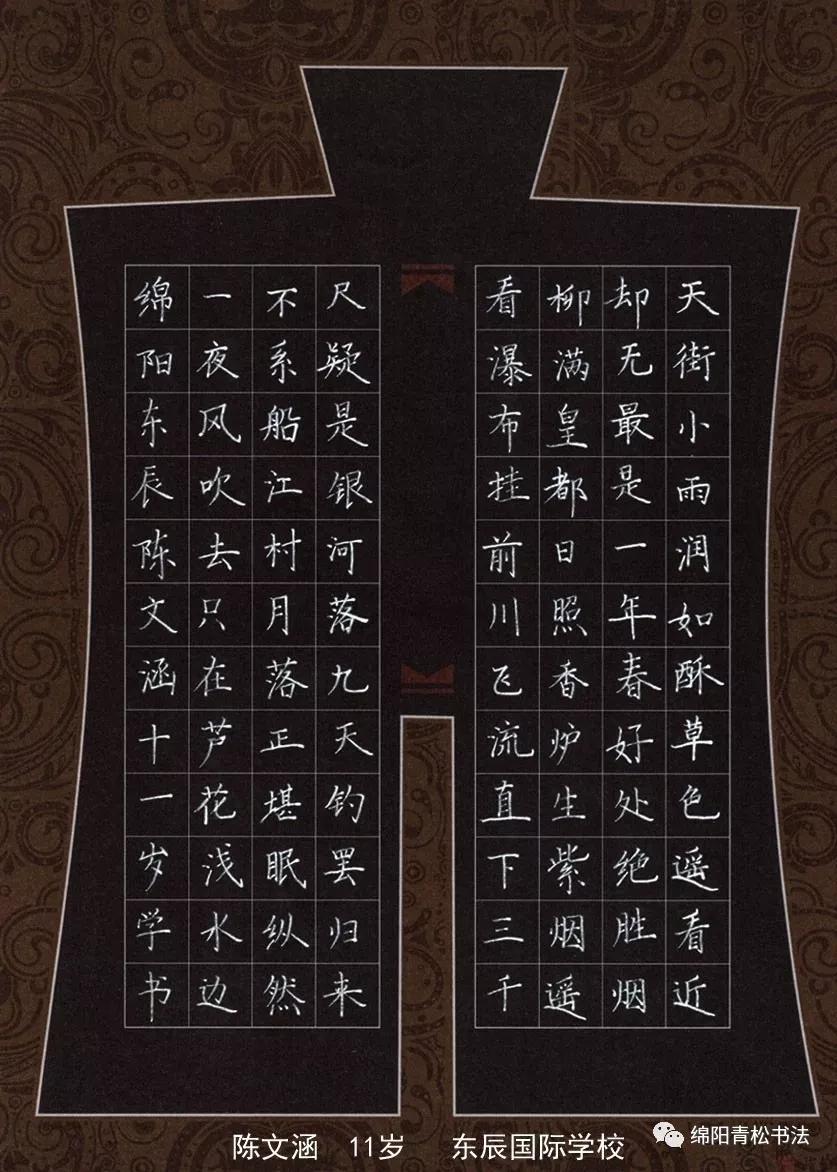 天街小雨润如酥草色遥看近
却无最是一年春好处绝胜烟
柳满皇都日照香炉生紫烟遥
看瀑布挂前川飞流直下三千
尺疑是银河落九天钓罢归来
不系船江村月落正堪眠纵然
一夜风吹去只在芦花浅水边
绵阳东辰陈文涵十一岁学书
陈文涵 11岁 东辰国际学校
绵阳青松书法